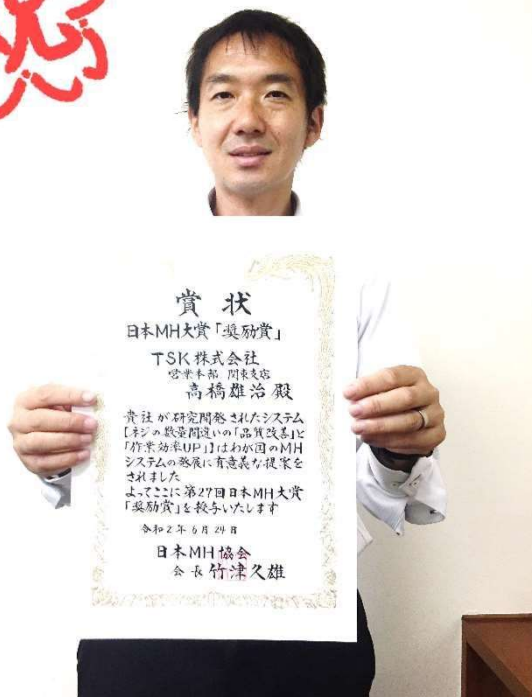 祝
賞状
日本MH大賞「奨励賞」
TSK株式会社
営業本部 関東支店
高橋雄治 殿
貴社が研究開発されたシステム
【ネジの数量間違いの「品質改善」と
「作業効率UP」】はわが国のMH
システムの発展に有意義な提案を
されました
よってここに第27回日本MH大賞
「奨励賞」を授与いたします
令和2年6月24日
日本MH協会
会長 竹津久雄